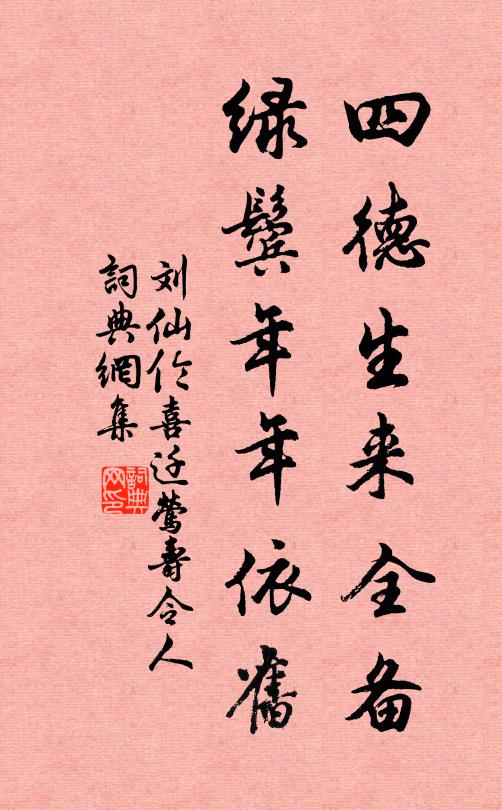 四德生来全备
绿鬓年年依舊
刘仙伦喜迁莺寿令人
詞典網集
詞典网印